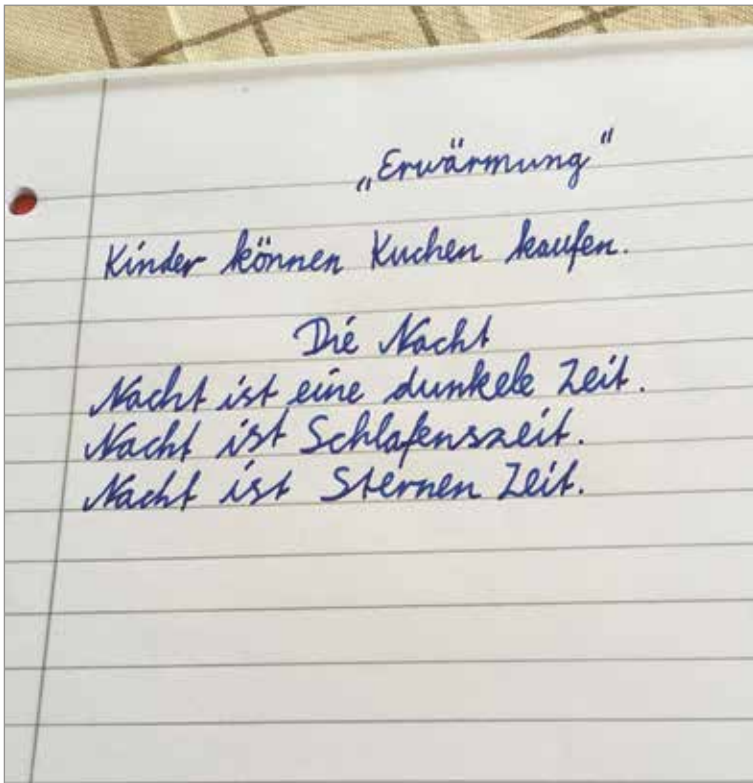 „Erwärmung“
Kinder können Kuchen kaufen.
Die Nacht
Nacht ist eine dunkele Zeit.
Nacht ist Schlafenszeit.
Nacht ist Sternen Zeit.